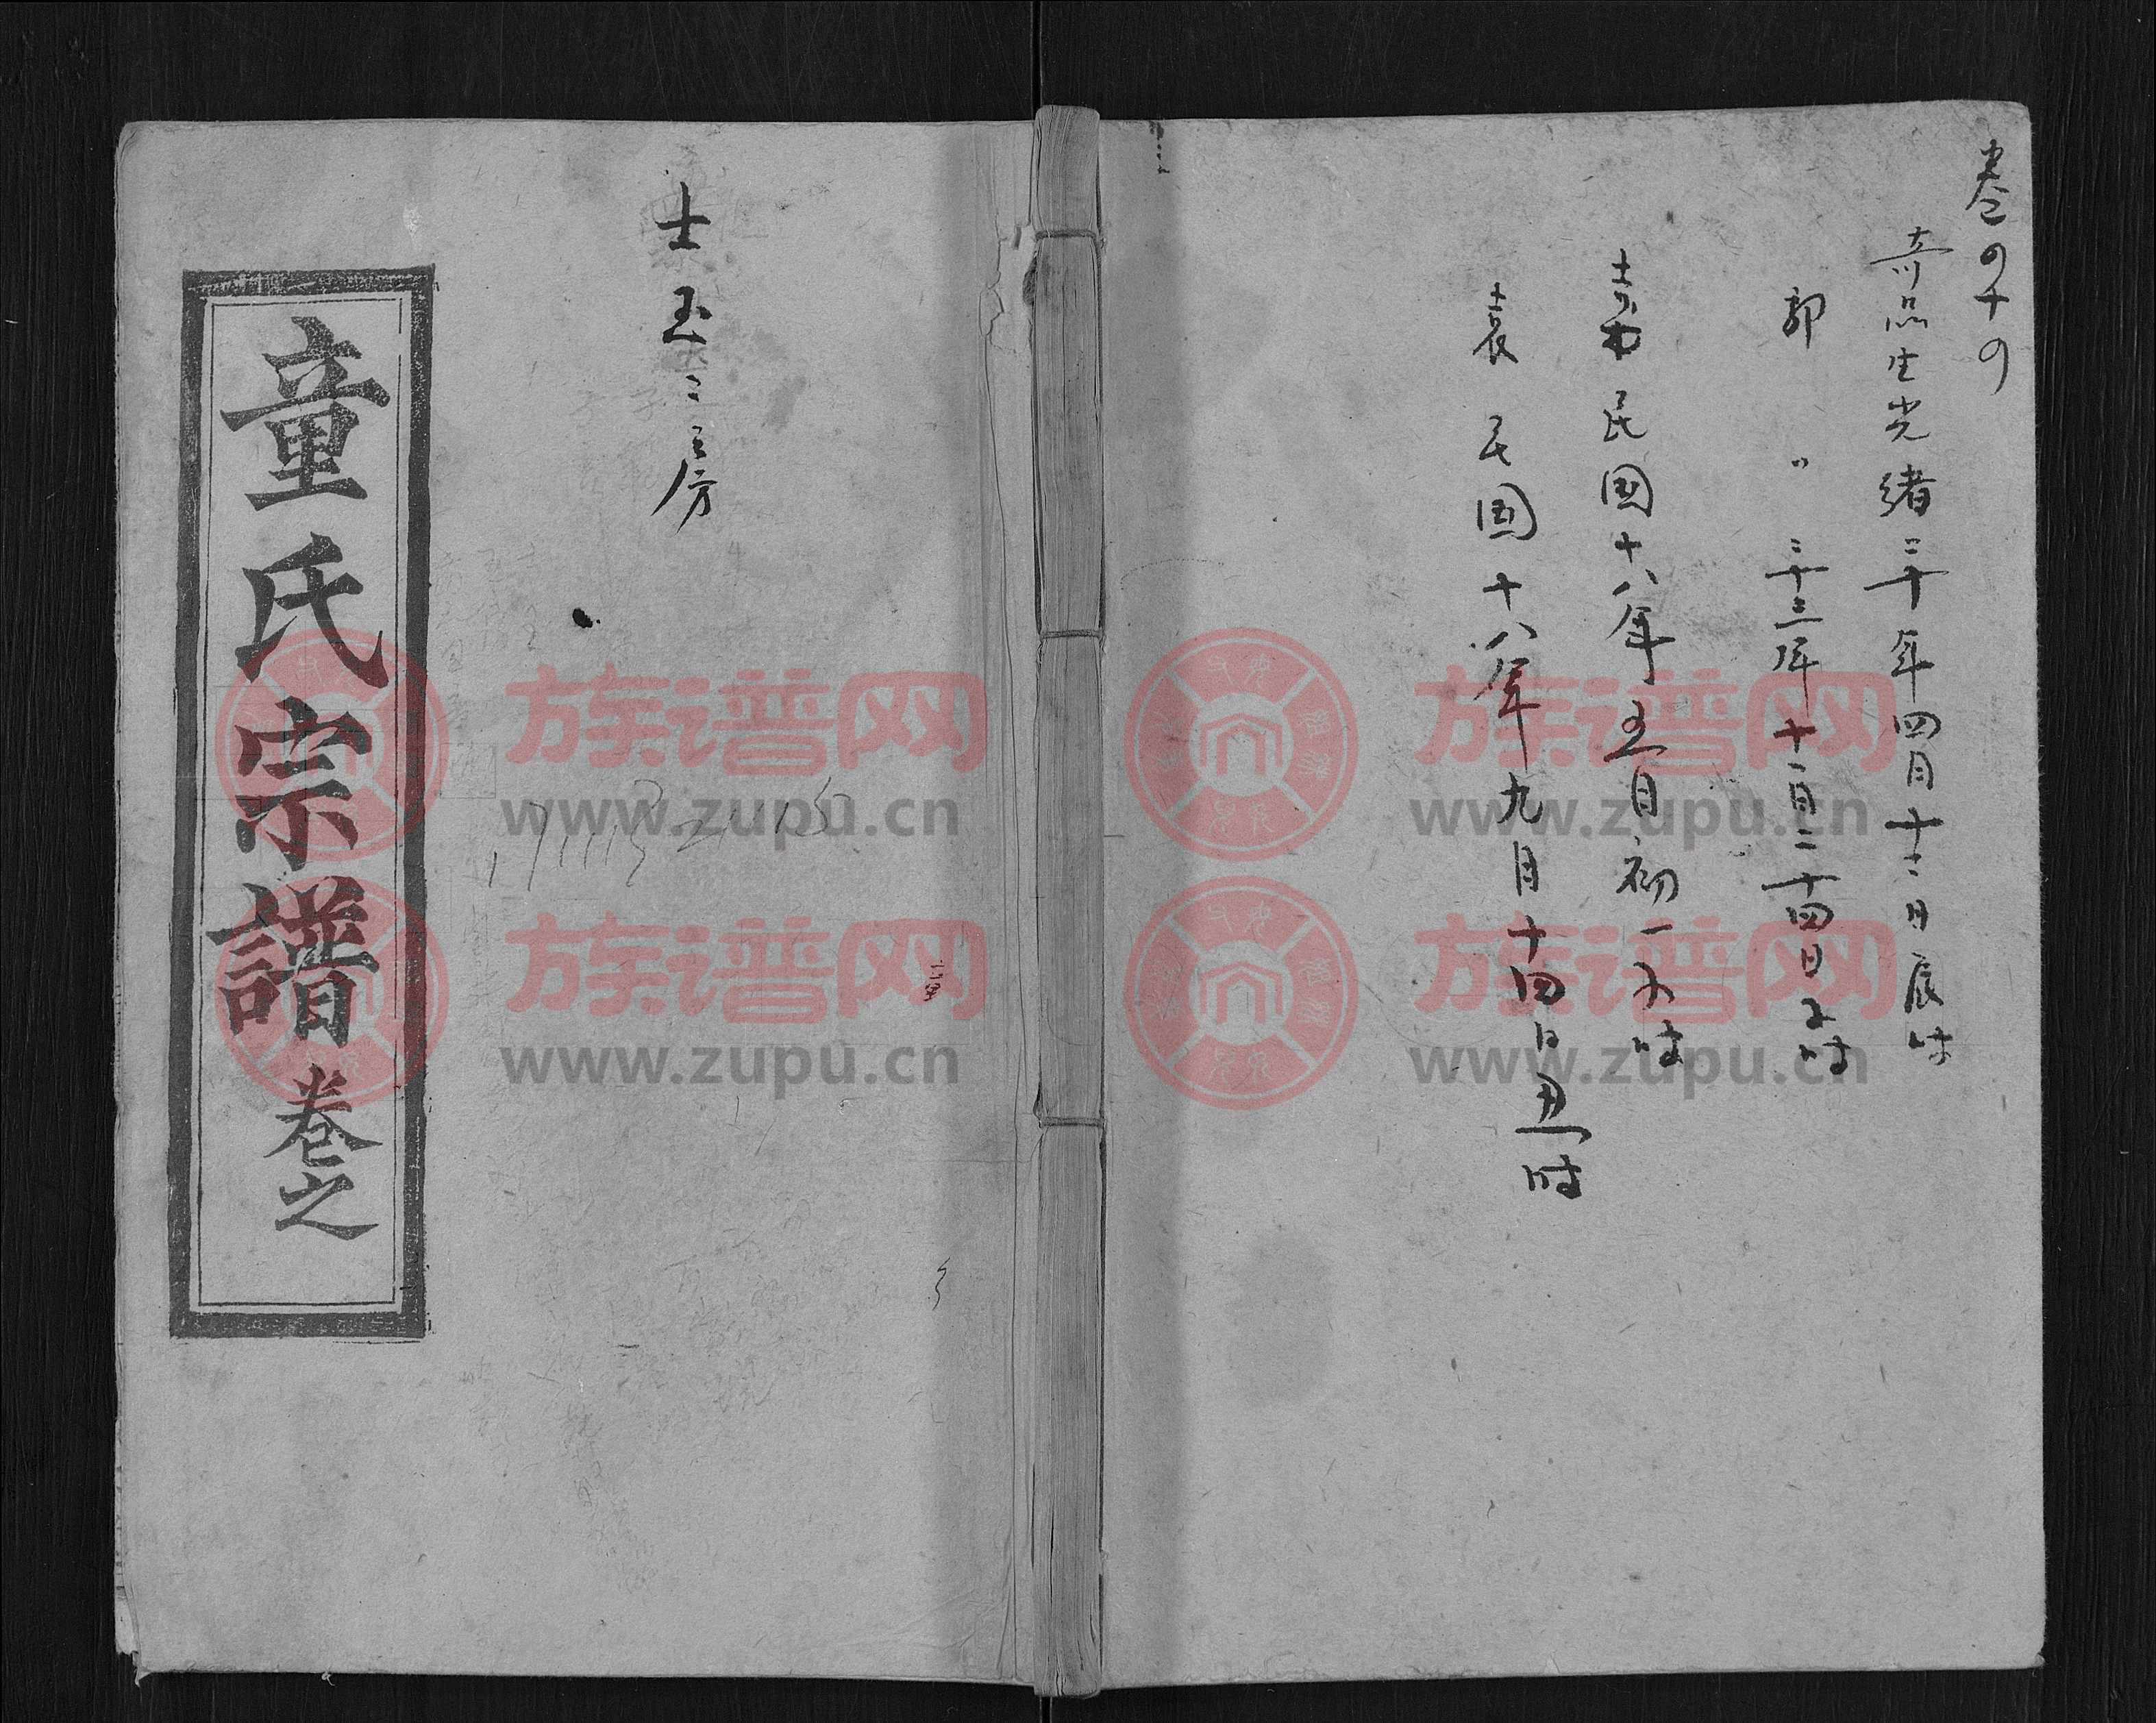 卷四十四
奇品生光緒二十年四月十二日辰时
郭 〃 三十三年十一月二十四日子时
民國十八年五月初一子时
袁 民国十八年九月十四日丑时
士玉三房
童氏宗譜卷之
族谱网
www.zupu.cn
族谱网
www.zupu.cn
族谱网
www.zupu.cn
族谱网
www.zupu.cn